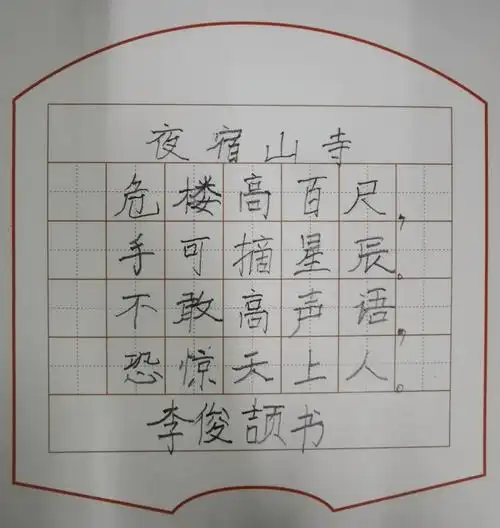 夜宿山寺
危楼高百尺,
手可摘星辰。
不敢高声语,
恐惊天上人。
李俊颉书